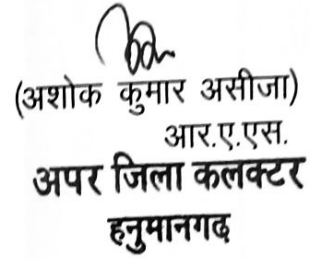 (अशोक कुमार असीजा)
आर.ए.एस.
अपर जिला कलक्टर
हनुमानगढ